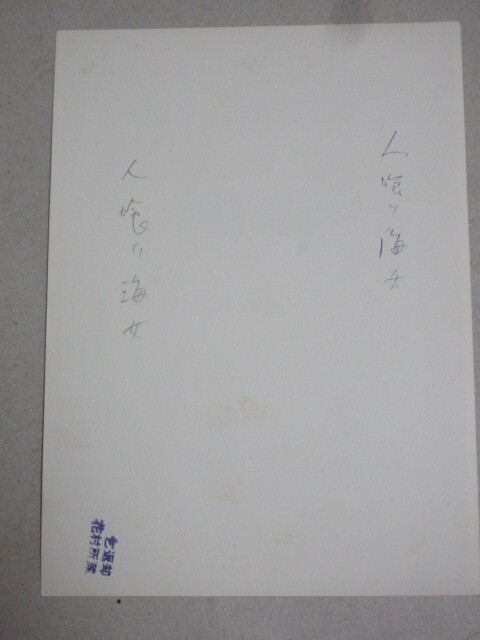 人喰い海女
人喰い海女
乞返却
花村所蔵